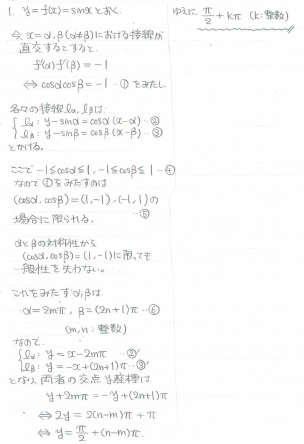 1. y=f(x)=sinxとおく.
今 x=α,β(α≠β)における接線が
直交するとすると.
f'(α)f'(β)=-1
⇔ cosαcosβ=-1 -① をみたし.
各々の接線lα, lβは
{ lα: y-sinα=cosα(x-α) -②
lβ: y-sinβ=cosβ(x-β) -③
とかける.
ここで -1≦cosα≦1, -1≦cosβ≦1 -④
なので ①をみたすのは
(cosα,cosβ)=(1,-1),(-1,1)の
場合に限られる. -⑤
αとβの対称性から
(cosα,cosβ)=(1,-1)に限っても
一般性を失わない。
これをみたすα,βは.
α=2mπ, β=(2n+1)π -⑥
(m,n:整数)
なので.
{ lα: y=x-2mπ -②'
lβ: y=-x+(2n+1)π -③'
となり, 両者の交点y座標は
y+2mπ=-y+(2n+1)π
⇔ 2y=2(n-m)π+π
⇔ y=π/2+(n-m)π.
ゆえに π/2+kπ (k:整数)